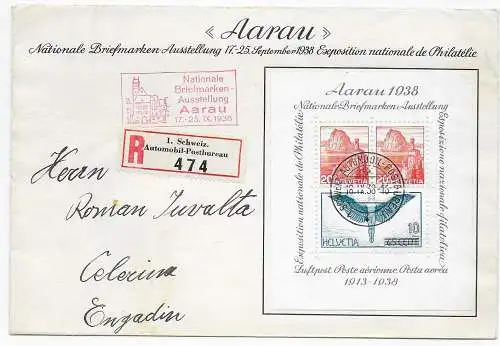 « Aarau »
Nationale Briefmarken Ausstellung 17.-25. September 1938 Exposition nationale de Philatélie
Nationale
Briefmarken-
Ausstellung
Aarau
17.-25. IX. 1938
R
1. Schweiz.
Automobil-Postbureau
474
Herrn
Roman Juvalta
Celerina
Engadin
Aarau 1938
Nationale Briefmarken Ausstellung
Exposition nationale de Philatélie
Esposizione nazionale filatelica
20 HELVETIA
20 HELVETIA
HELVETIA
10
65 CENT
Luftpost Poste aérienne Posta aerea
1913-1938